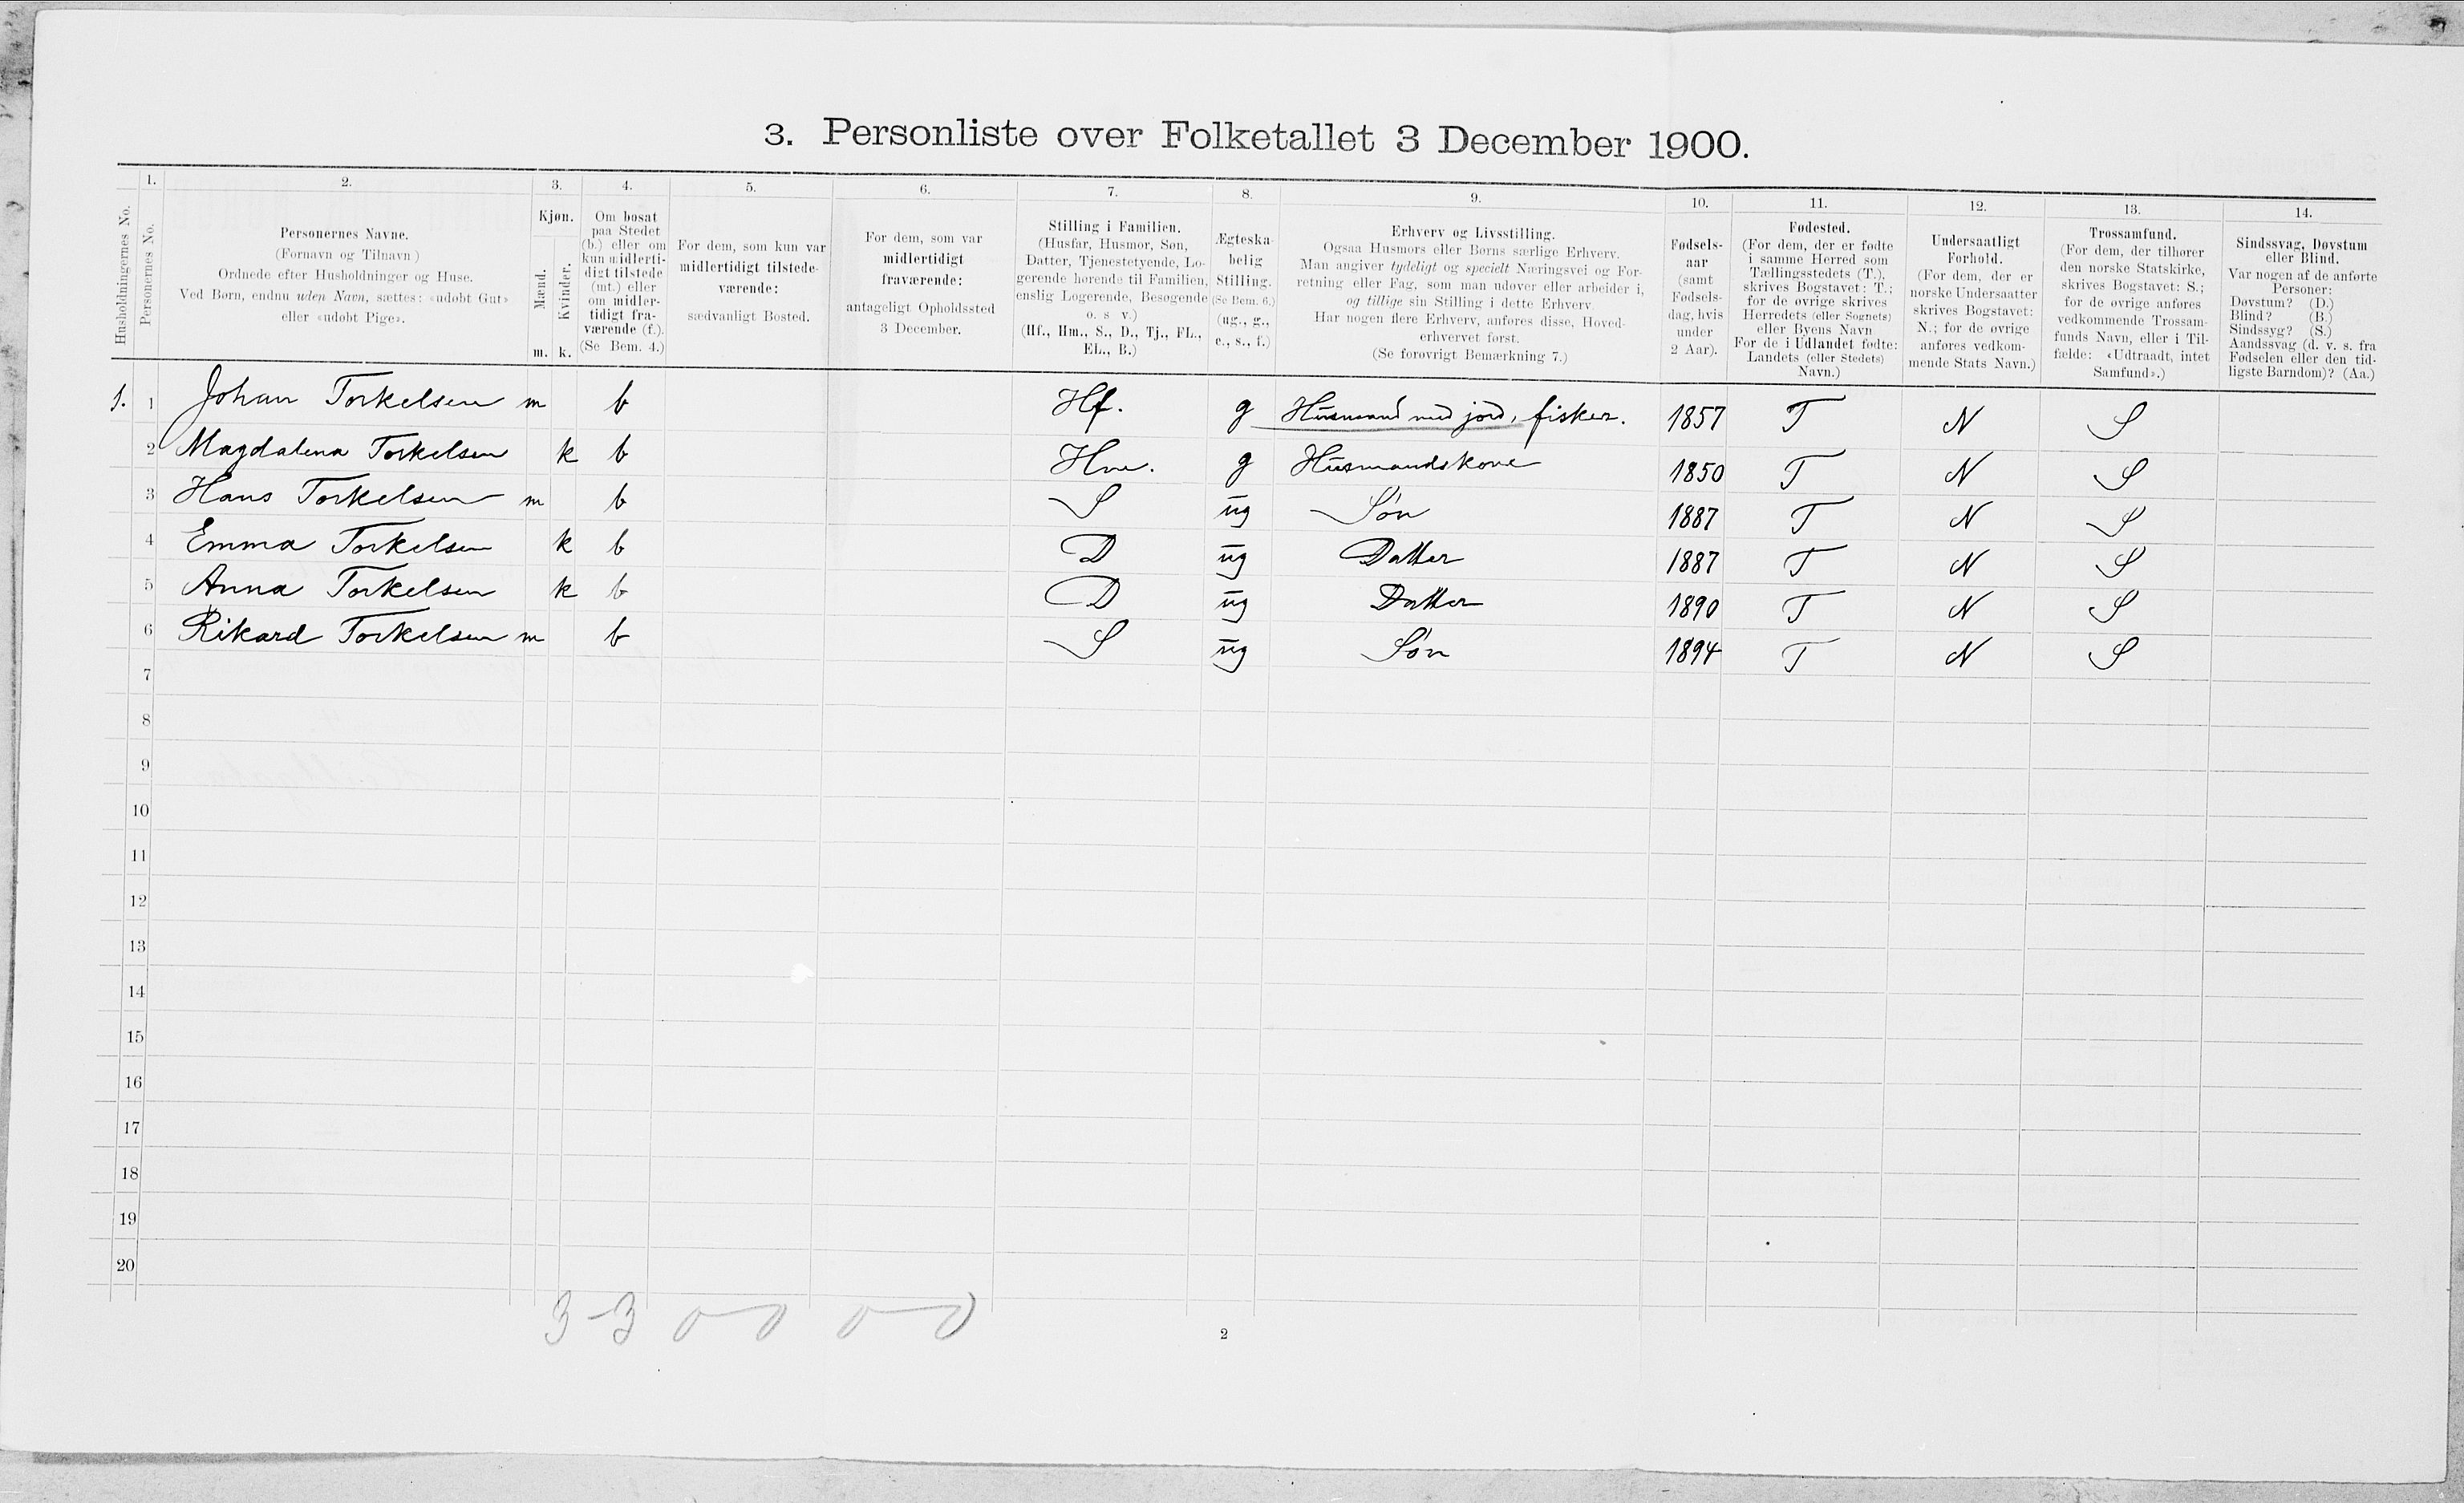 3. Personliste over Folketallet 3 December 1900.
1. 2. 3. 4. 5. 6. 7. 8. 9. 10. 11. 12. 13. 14.
Husholdningernes No.
Personernes No.
Personernes Navne.
(Fornavn og Tilnavn)
Ordnede efter Husholdninger og Huse.
Ved Børn, endnu uden Navn, sættes: «udøbt Gut»
eller «udøbt Pige».
Kjøn.
Mænd.
Kvinder.
m. k.
Om bosat
paa Stedet
(b.) eller om
kun midlerti-
digt tilstede
(mt.) eller
om midler-
tidigt fra-
værende (f.).
(Se Bem. 4.)
For dem, som kun var
midlertidigt tilstede-
værende:
sædvanligt Bosted.
For dem, som var
midlertidigt
fraværende:
antageligt Opholdssted
3 December.
Stilling i Familien.
(Husfar, Husmor, Søn,
Datter, Tjenestetyende, Lo-
gerende hørende til Familien,
enslig Logerende, Besøgende
o. s v.)
(Hf., Hm., S., D., Tj., FL.,
EL., B.)
Ægteska-
belig
Stilling.
(Se Bem. 6.)
(ug., g.,
e., s., f.)
Erhverv og Livsstilling.
Ogsaa Husmors eller Børns særlige Erhverv.
Man angiver tydeligt og specielt Næringsvei og For-
retning eller Fag, som man udøver eller arbeider i,
og tillige sin Stilling i dette Erhverv.
Har nogen flere Erhverv, anføres disse, Hoved-
erhvervet først.
(Se forøvrigt Bemærkning 7.)
Fødsels-
aar
(samt
Fødsels-
dag, hvis
under
2 Aar).
Fødested.
(For dem, der er fødte
i samme Herred som
Tællingsstedets (T.),
skrives Bogstavet: T.;
for de øvrige skrives
Herredets (eller Sognets)
eller Byens Navn
For de i Udlandet fødte:
Landets (eller Stedets)
Navn.)
Undersaatligt
Forhold.
(For dem, der er
norske Undersaatter
skrives Bogstavet:
N.; for de øvrige
anføres vedkom-
mende Stats Navn.)
Trossamfund.
(For dem, der tilhører
den norske Statskirke,
skrives Bogstavet: S.;
for de øvrige anføres
vedkommende Trossam-
funds Navn, eller i Til-
fælde: «Udtraadt, intet
Samfund».)
Sindssvag, Døvstum
eller Blind.
Var nogen af de anførte
Personer:
Døvstum? (D.)
Blind? (B.)
Sindssyg? (S.)
Aandssvag (d. v. s. fra
Fødselen eller den tid-
ligste Barndom)? (Aa.)
1. 1 Johan Torkelsen m b Hf. g Husmand med jord, fisker. 1857 T N S
2 Magdalena Torkelsen k b Hm. g Husmandskone 1850 T N S
3 Hans Torkelsen m b S ug Søn 1887 T N S
4 Emma Torkelsen k b D ug Datter 1887 T N S
5 Anna Torkelsen k b D ug Datter 1890 T N S
6 Rikard Torkelsen m b S ug Søn 1894 T N S
7
8
9
10
11
12
13
14
15
16
17
18
19
20
3-3 0-0 0-0
2